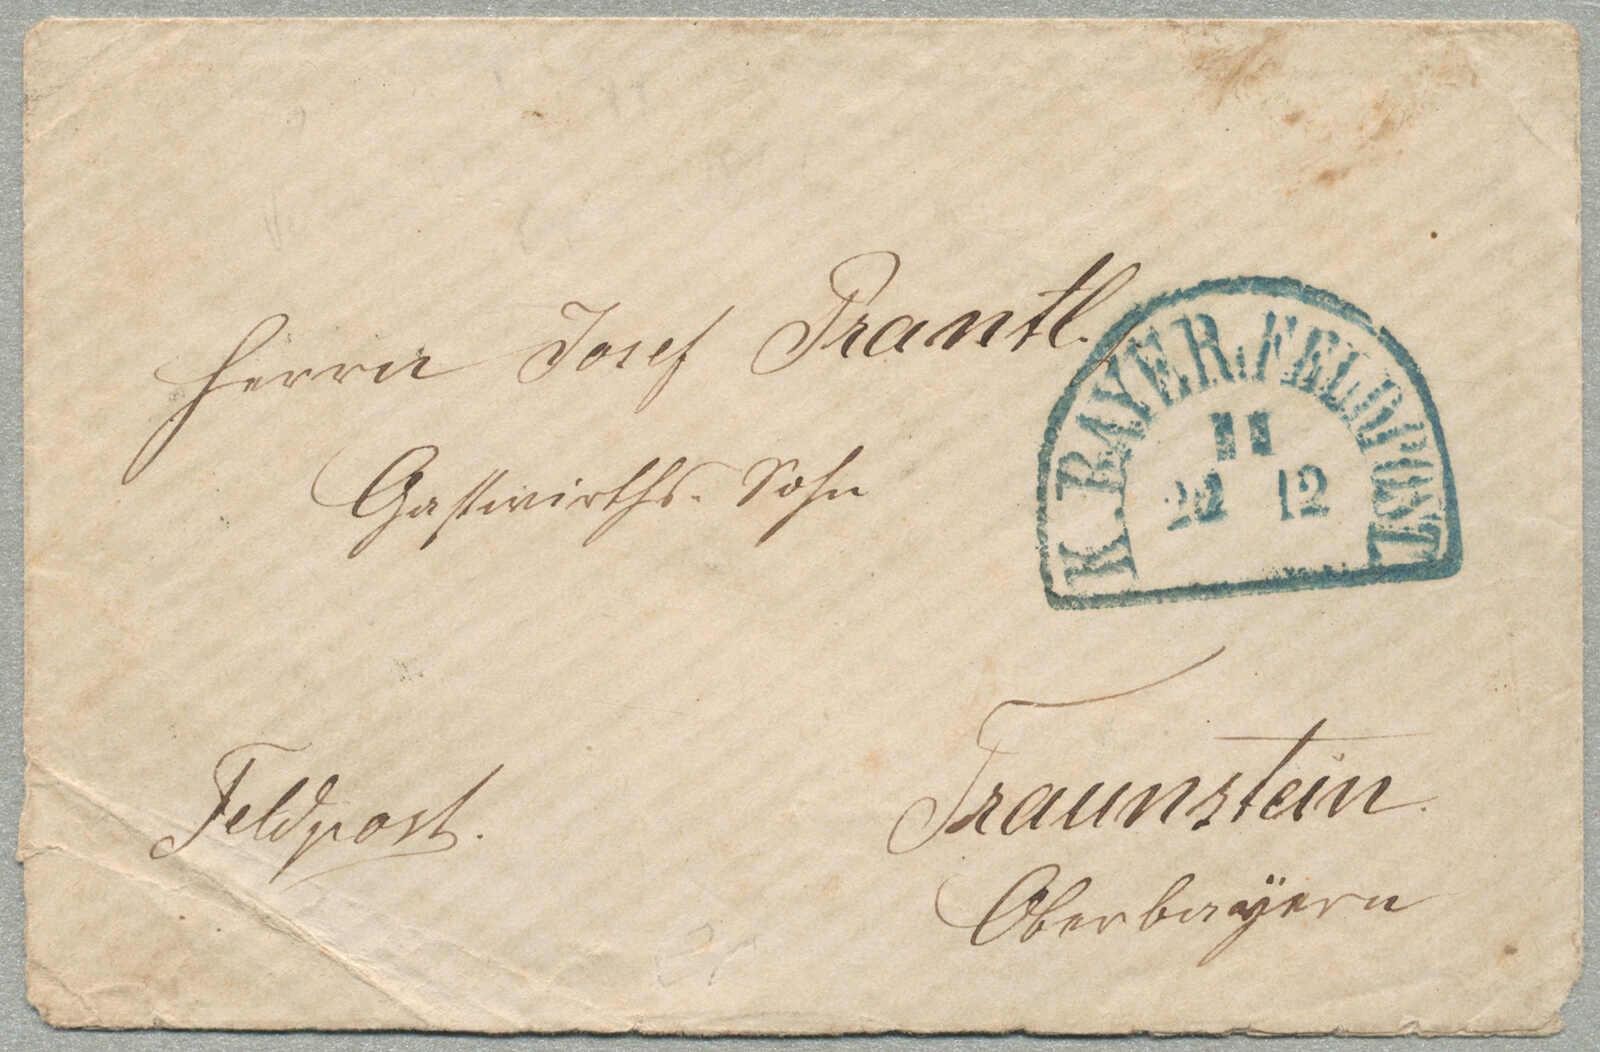 Herrn Josef Prantl.
Gastwirths-Sohn
K. BAYER. FELDPOST
II
12
Feldpost.
Traunstein.
Oberbayern